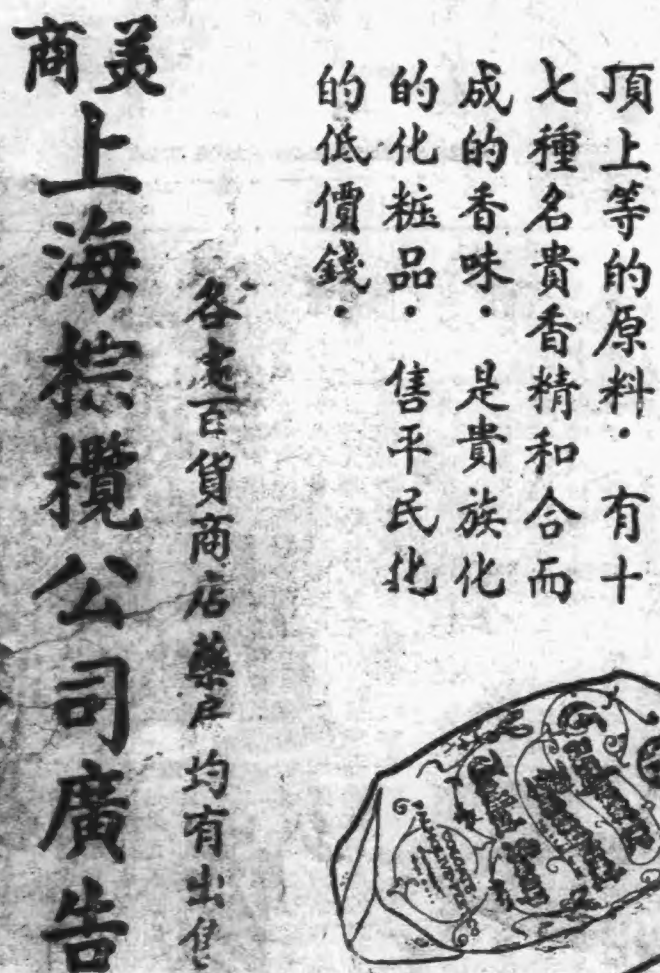 頂上等的原料．有十
七種名貴香精和合而
成的香味．是貴族化
的化粧品．售平民化
的低價錢．
各處百貨商店藥房均有出售
美商
上海棕欖公司廣告